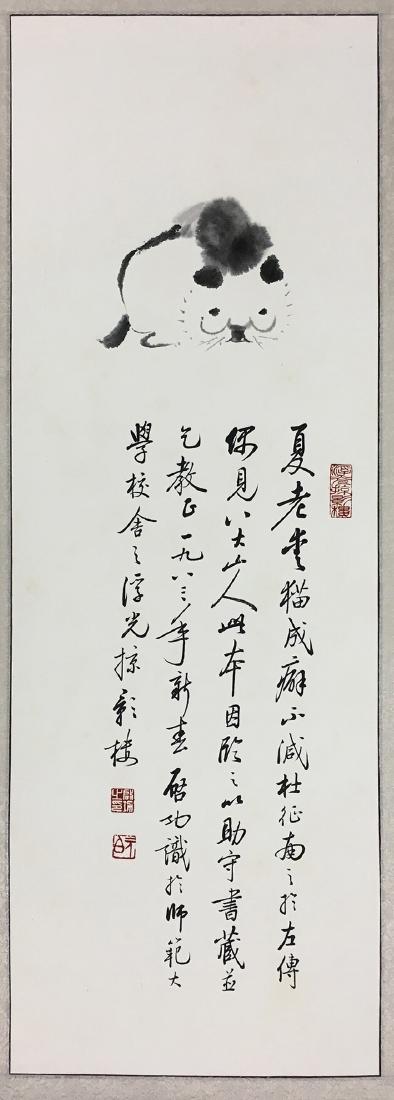 夏老愛猫成癖不減杜征南之於左傳
偶見八大山人此本因臨之以助守書藏並
乞教正一九八三年新春啓功識於師範大
學校舍之浮光掠影樓
浮光掠影樓
啓功之印
元白